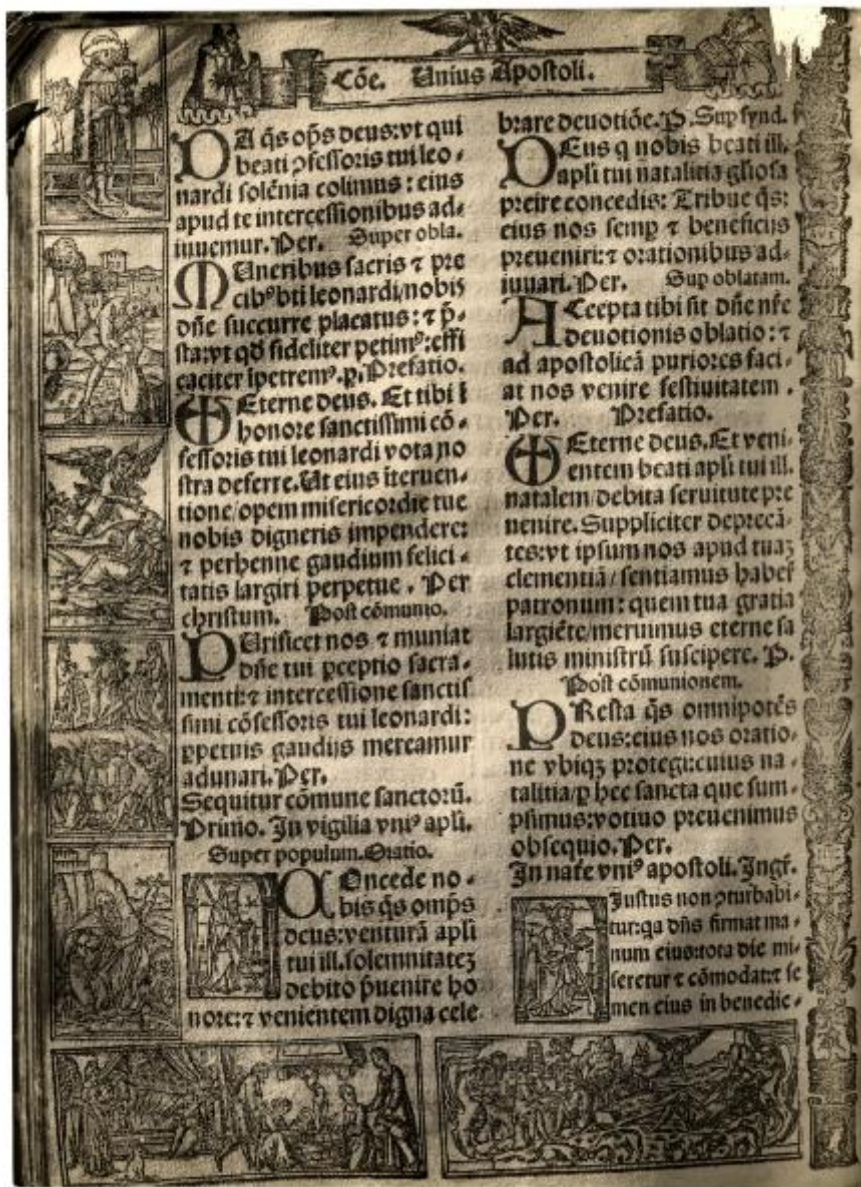 Cōe. Unius Apostoli.
DA q̄s op̄s deus: vt qui
beati ꝓfessoris tui leo-
nardi solēnia colimus: eius
apud te intercessionibus ad-
iuuemur. Per. Super obla.
MUneribus sacris ⁊ pre
cibꝰ bti leonardi/nobis
dn̄e succurre placatus: ⁊ p̄-
sta: vt qđ fideliter petimꝰ: effi
caciter īpetremꝰ. p. Prefatio.
Eterne deus. Et tibi ī
honore sanctissimi cō-
fessoris tui leonardi vota no
stra deferre. Ut eius īteruen-
tione/opem misericordie tue
nobis digneris impendere:
⁊ perhenne gaudium felici-
tatis largiri perpetue. Per
christum. Post cōmunio.
PUrificet nos ⁊ muniat
dn̄e tui ꝑceptio sacra-
menti: ⁊ intercessione sanctis
simi cōfessoris tui leonardi:
ꝑpetuis gaudijs mereamur
adunari. Per.
Sequitur cōmune sanctorū.
Primo. In vigilia vniꝰ apl̄i.
Super populum. Oratio.
COncede no-
bis q̄s omp̄s
deus: venturā apl̄i
tui ill. solemnitatē
debito p̄uenire ho
nore: ⁊ venientem digna cele
brare deuotiōe. P. Sup synd.
DEus q nobis beati ill.
apl̄i tui natalitia gl̄iosa
preire concedis: Tribue q̄s:
eius nos semꝑ ⁊ beneficijs
preueniri: ⁊ orationibus ad-
iuuari. Per. Sup oblatam.
ACcepta tibi sit dn̄e nr̄e
deuotionis oblatio: ⁊
ad apostolicā puriores faci-
at nos venire festiuitatem.
Per. Prefatio.
Eterne deus. Et veni-
entem beati apl̄i tui ill.
natalem/debita seruitute pre
uenire. Suppliciter deprecā-
tes: vt ipsum nos apud tuaꝫ
clementiā/sentiamus haber̄
patronum: quem tua gratia
largiēte/meruimus eterne sa
lutis ministrū suscipere. P.
Post cōmunionem.
PResta q̄s omnipotēs
deus: eius nos oratio-
ne vbiqꝫ protegi: cuius na-
talitia/ꝑ hec sancta que sum-
psimus: votiuo preuenimus
obsequio. Per.
In nat̄e vniꝰ apostoli. Ingr̄.
Justus non ꝯturbabi-
tur: qa dn̄s firmat ma-
num eius: tota die mi-
seretur ⁊ cōmodat: ⁊ se
men eius in benedic-